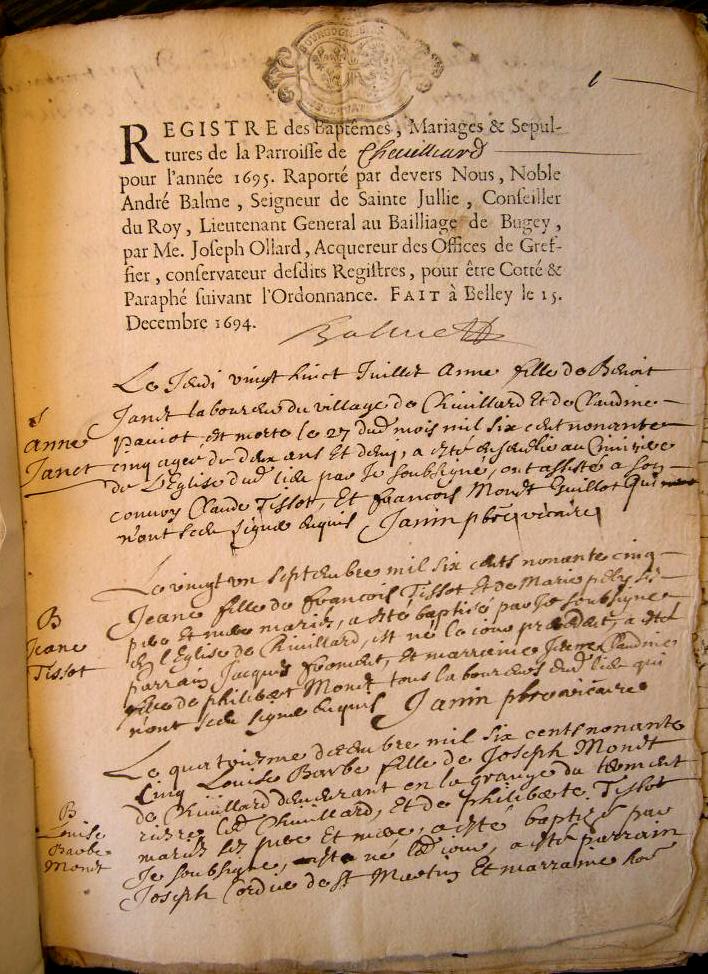 1
REGISTRE des Baptêmes, Mariages & Sepul-
tures de la Parroisse de
pour l'année 1695. Raporté par devers Nous, Noble
André Balme, Seigneur de Sainte Jullie, Conseiller
du Roy, Lieutenant General au Bailliage de Bugey,
par Me. Joseph Ollard, Acquereur des Offices de Gref-
fier, conservateur desdits Registres, pour être Cotté &
Paraphé suivant l'Ordonnance. FAIT à Belley le 15.
Decembre 1694.
Balme
Le Jeudi vingt huict Juillet Anne fille de Benoit
Janet laboureur du village de Chivillard Et de Claudine
est morte le 27 dud mois mil six cent nonante
S
Anne
Janet
cinq agee de deux ans et demy, a esté ensevelie au Cimitiere
de L'Eglise dud lieu par Je soubsigné, ont assisté a son
convoy Claude Tissot, Et francois Monet Guillot qui
n'ont sceu signe enquis Janin pbre vicaire
Le vingt un septembre mil six cents nonante cinq
Jeane fille de francois Tissot Et de Marie
B
Jeane
Tissot
pere Et mere mariez, a esté baptisé par Je soubsigné
en l'Eglise de Chivillard, est né le jour precedent, a esté
parrain Jacques froment, Et marraine Claudine
de philibert Monet tous laboureurs dud lieu qui
n'ont sceu signe enquis Janin pbre vicaire
Le quatriesme decembre mil six cents nonante
Cinq Louise Barbe fille de Joseph Monet
de Chivillard demeurant en la grange du
Chivillard, Et de philiberte Tissot
B
Louise
Barbe
Monet
mariez ses pere Et mere, a esté baptisé par
Je soubsigné, né led jour, a esté parrain
Joseph de St Martin Et marraine